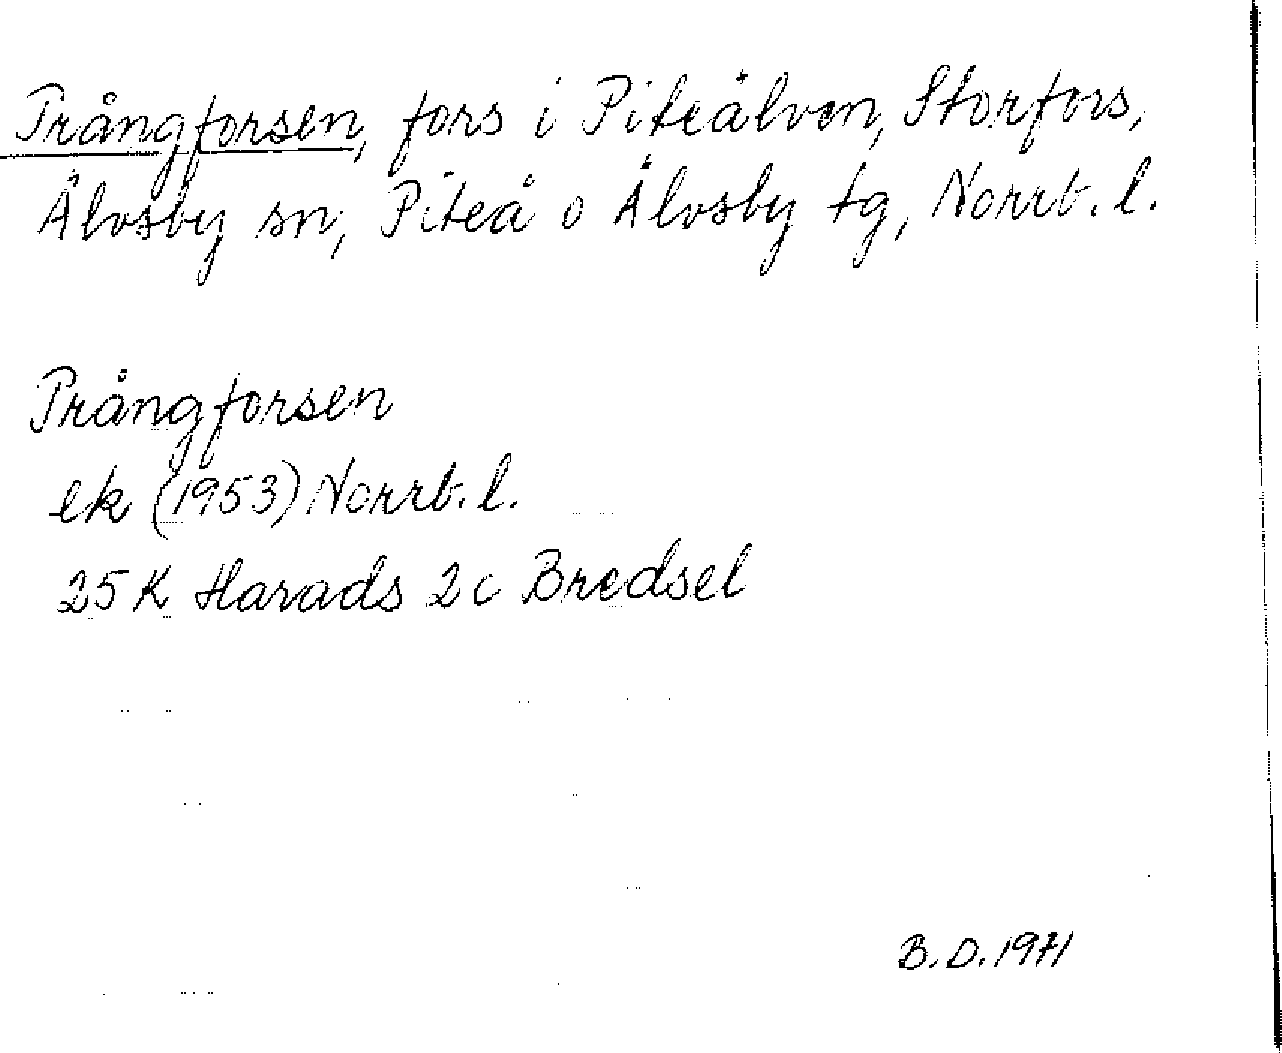 Trångforsen, fors i Piteälven, Storfors,
Älvsby sn, Piteå o Älvsby tg, Norrb. l.
Trångforsen
ek (1953) Norrb. l.
25 K Harads 2 c Bredsel
B. D. 1971